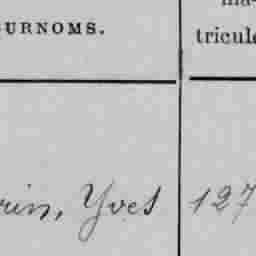 URNOMS.
ma-
tricule
rin, Yves
127